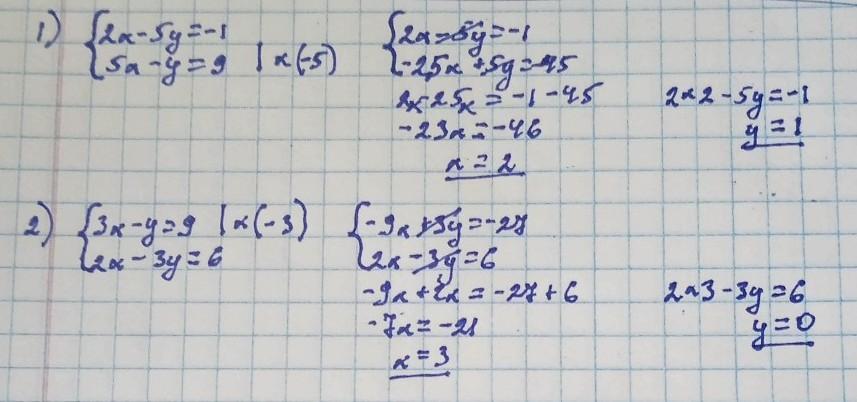 1) { 2x-5y=-1
5x-y=9 | x(-5)
{ 2x-5y=-1
-25x+5y=-45
2x-25x=-1-45
-23x=-46
x=2
2x2-5y=-1
y=1
2) { 3x-y=9 | x(-3)
2x-3y=6
{ -9x+3y=-27
2x-3y=6
-9x+2x=-27+6
-7x=-21
x=3
2x3-3y=6
y=0